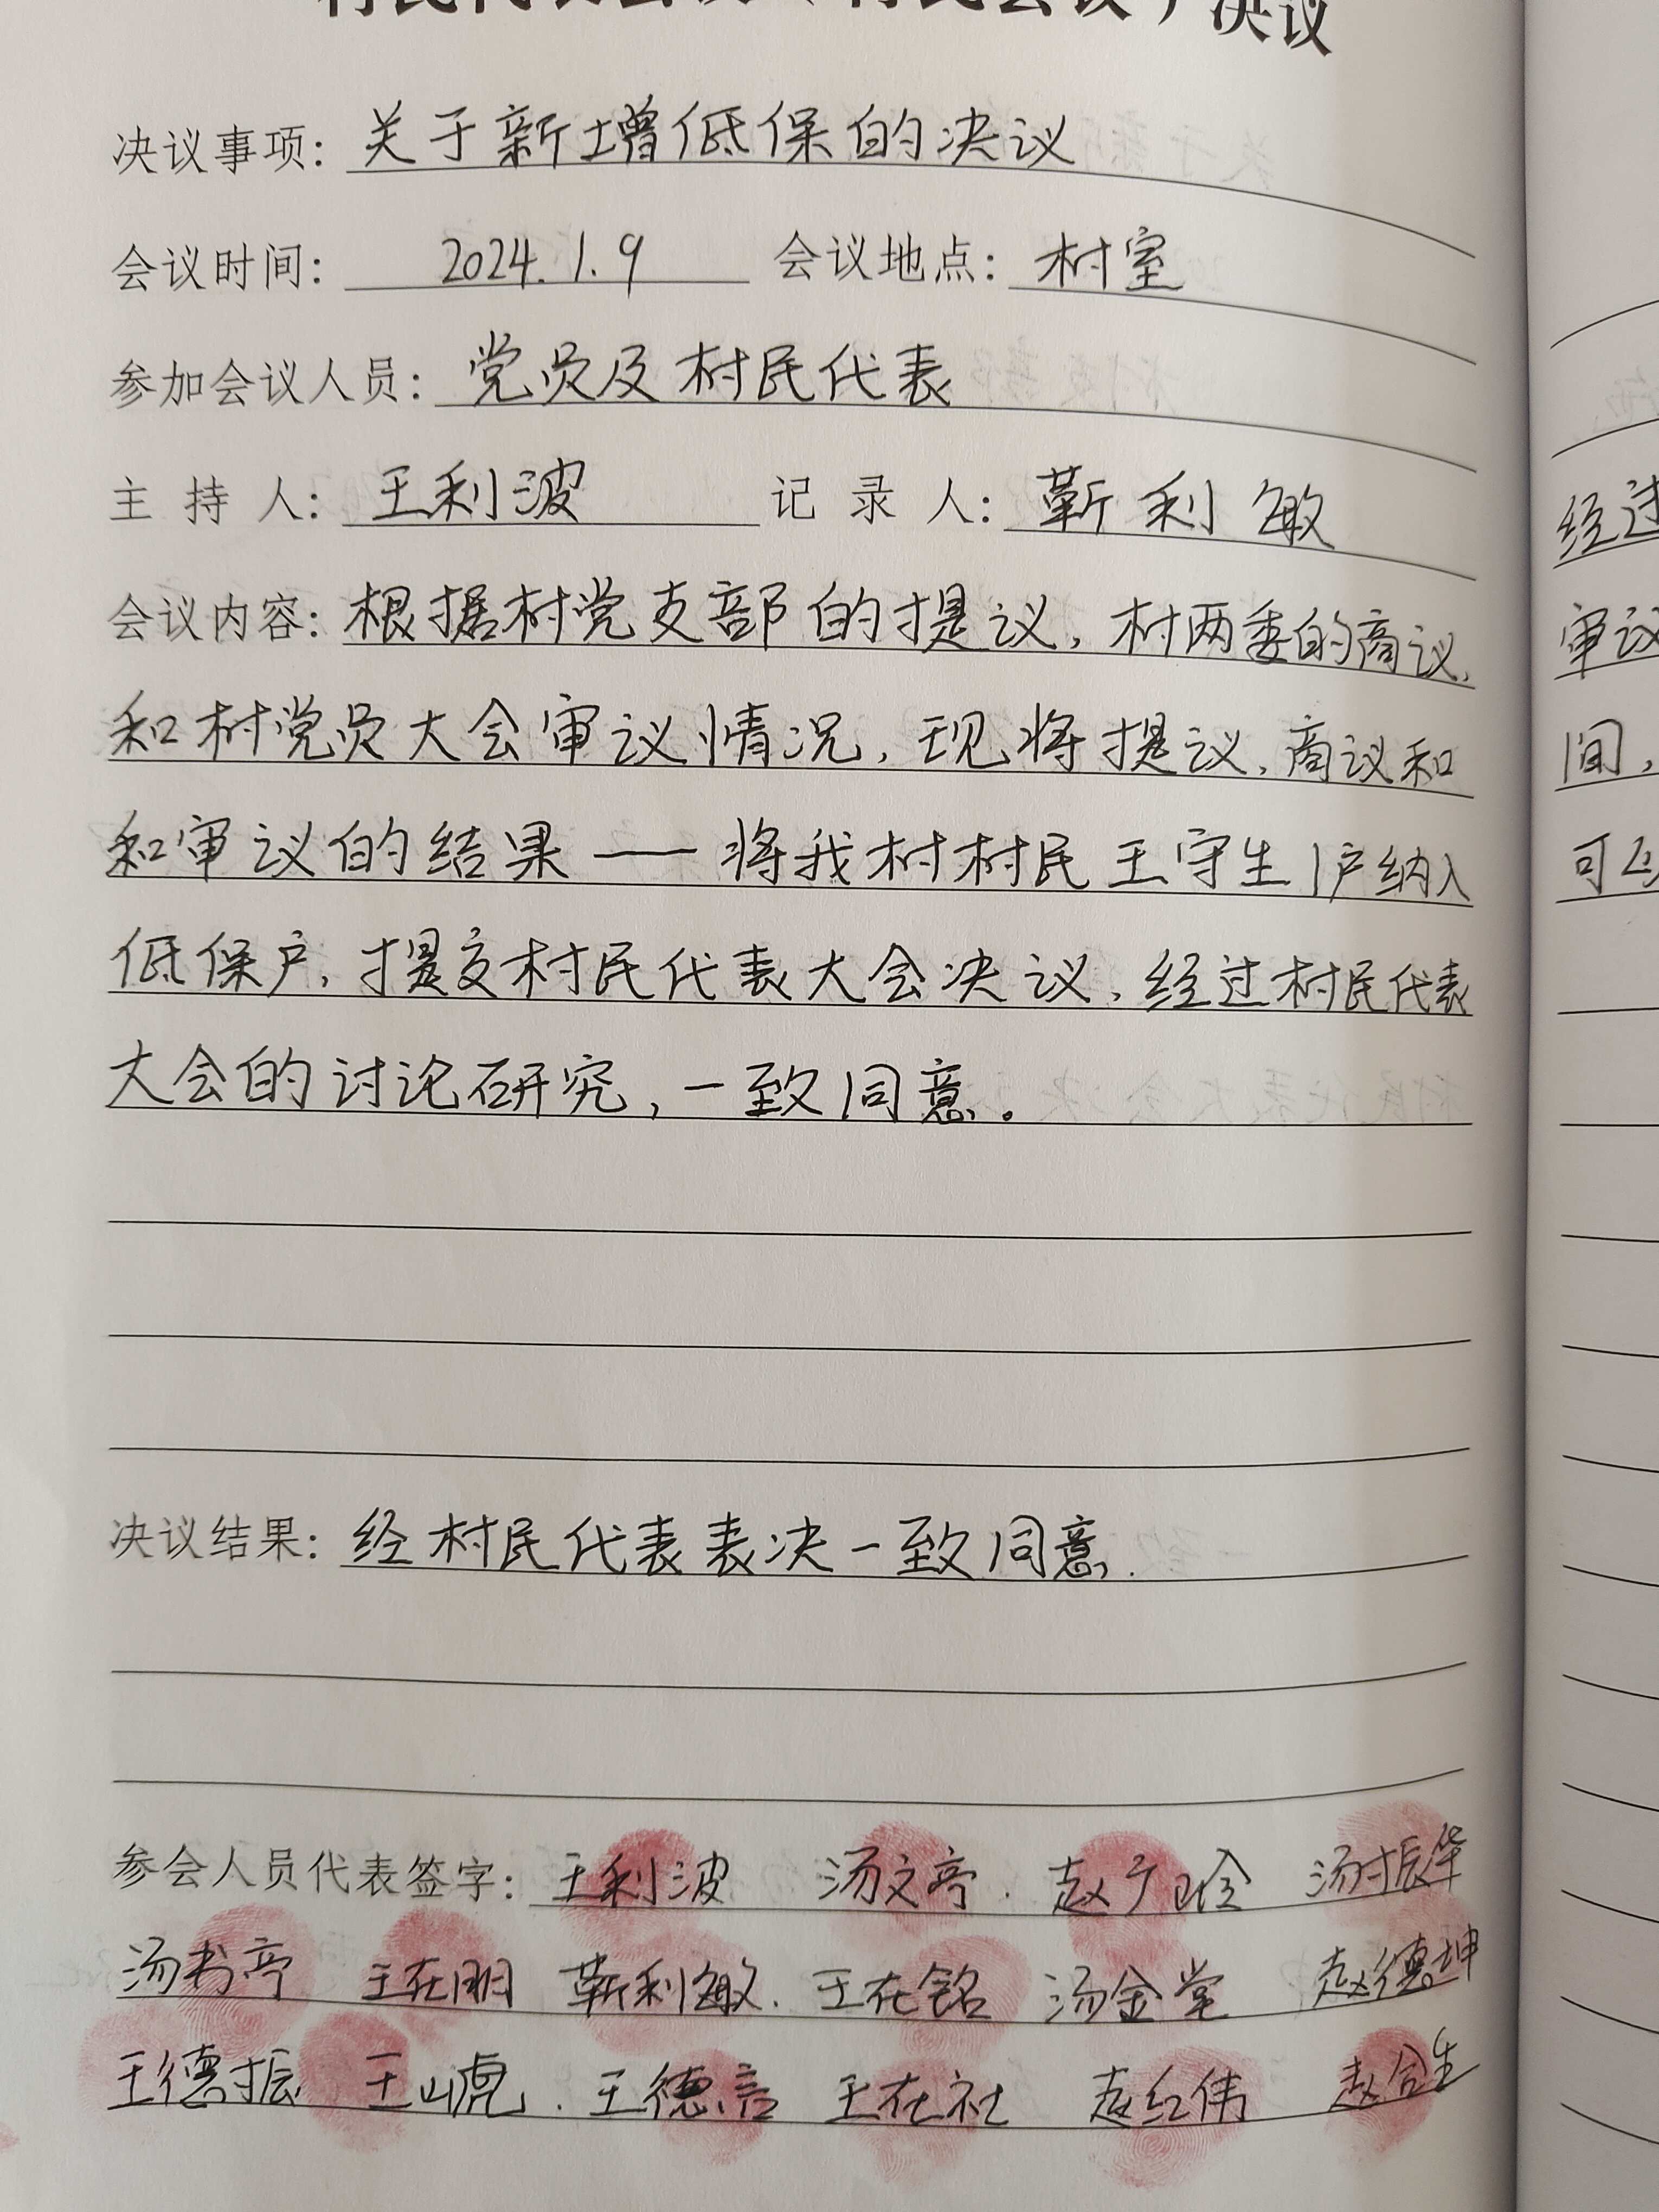 村民代表会议（村民会议）决议
决议事项：关于新增低保的决议
会议时间：2024.1.9 会议地点：村室
参加会议人员：党员及村民代表
主持人：王利波 记录人：靳利敏
会议内容：根据村党支部的提议，村两委的商议，
和村党员大会审议情况，现将提议，商议和
和审议的结果——将我村村民王守生1户纳入
低保户，提交村民代表大会决议，经过村民代表
大会的讨论研究，一致同意。
决议结果：经村民代表表决一致同意.
参会人员代表签字：王利波 汤文亭. 赵广玲 汤振华
汤书亭 王在明 靳利敏. 王在铭 汤金堂 赵德坤
王德振 王山虎. 王德言 王在社 赵红伟 赵合生
经过
审议
间，
可